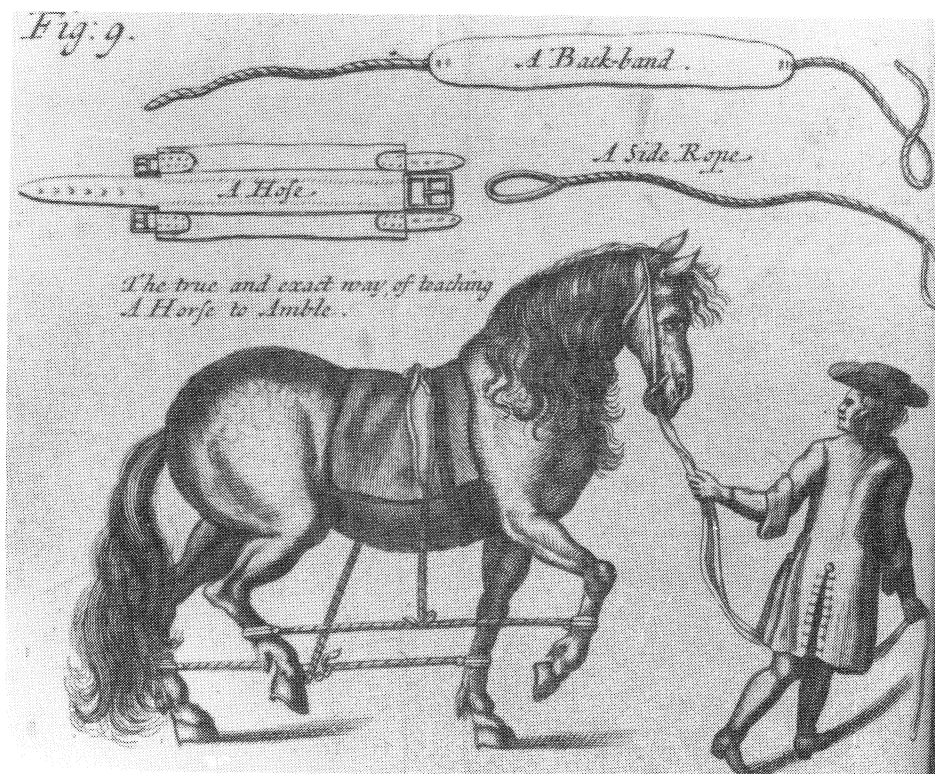 Fig: 9.
A Back-band .
A Side Rope
A Hose
The true and exact way of teaching
A Horse to Amble .